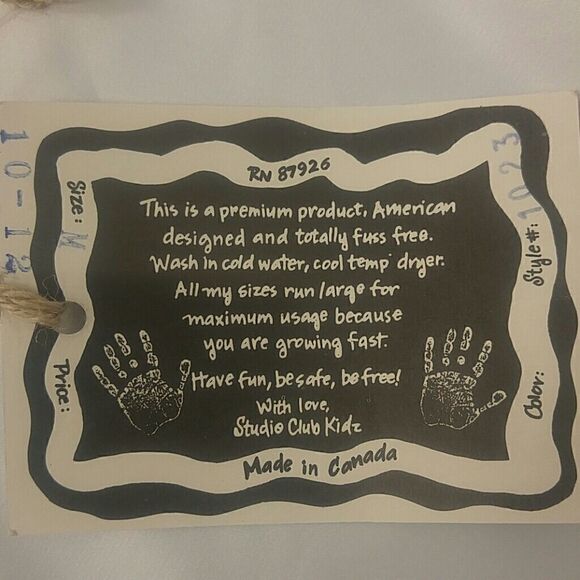 RN 87926
This is a premium product, American
designed and totally fuss free.
Wash in cold water, cool temp dryer.
All my sizes run large for
maximum usage because
you are growing fast.
Have fun, be safe, be free!
With love,
Studio Club Kidz
Made in Canada
Size: M
10-12
Price:
Style#: 1023
Color: